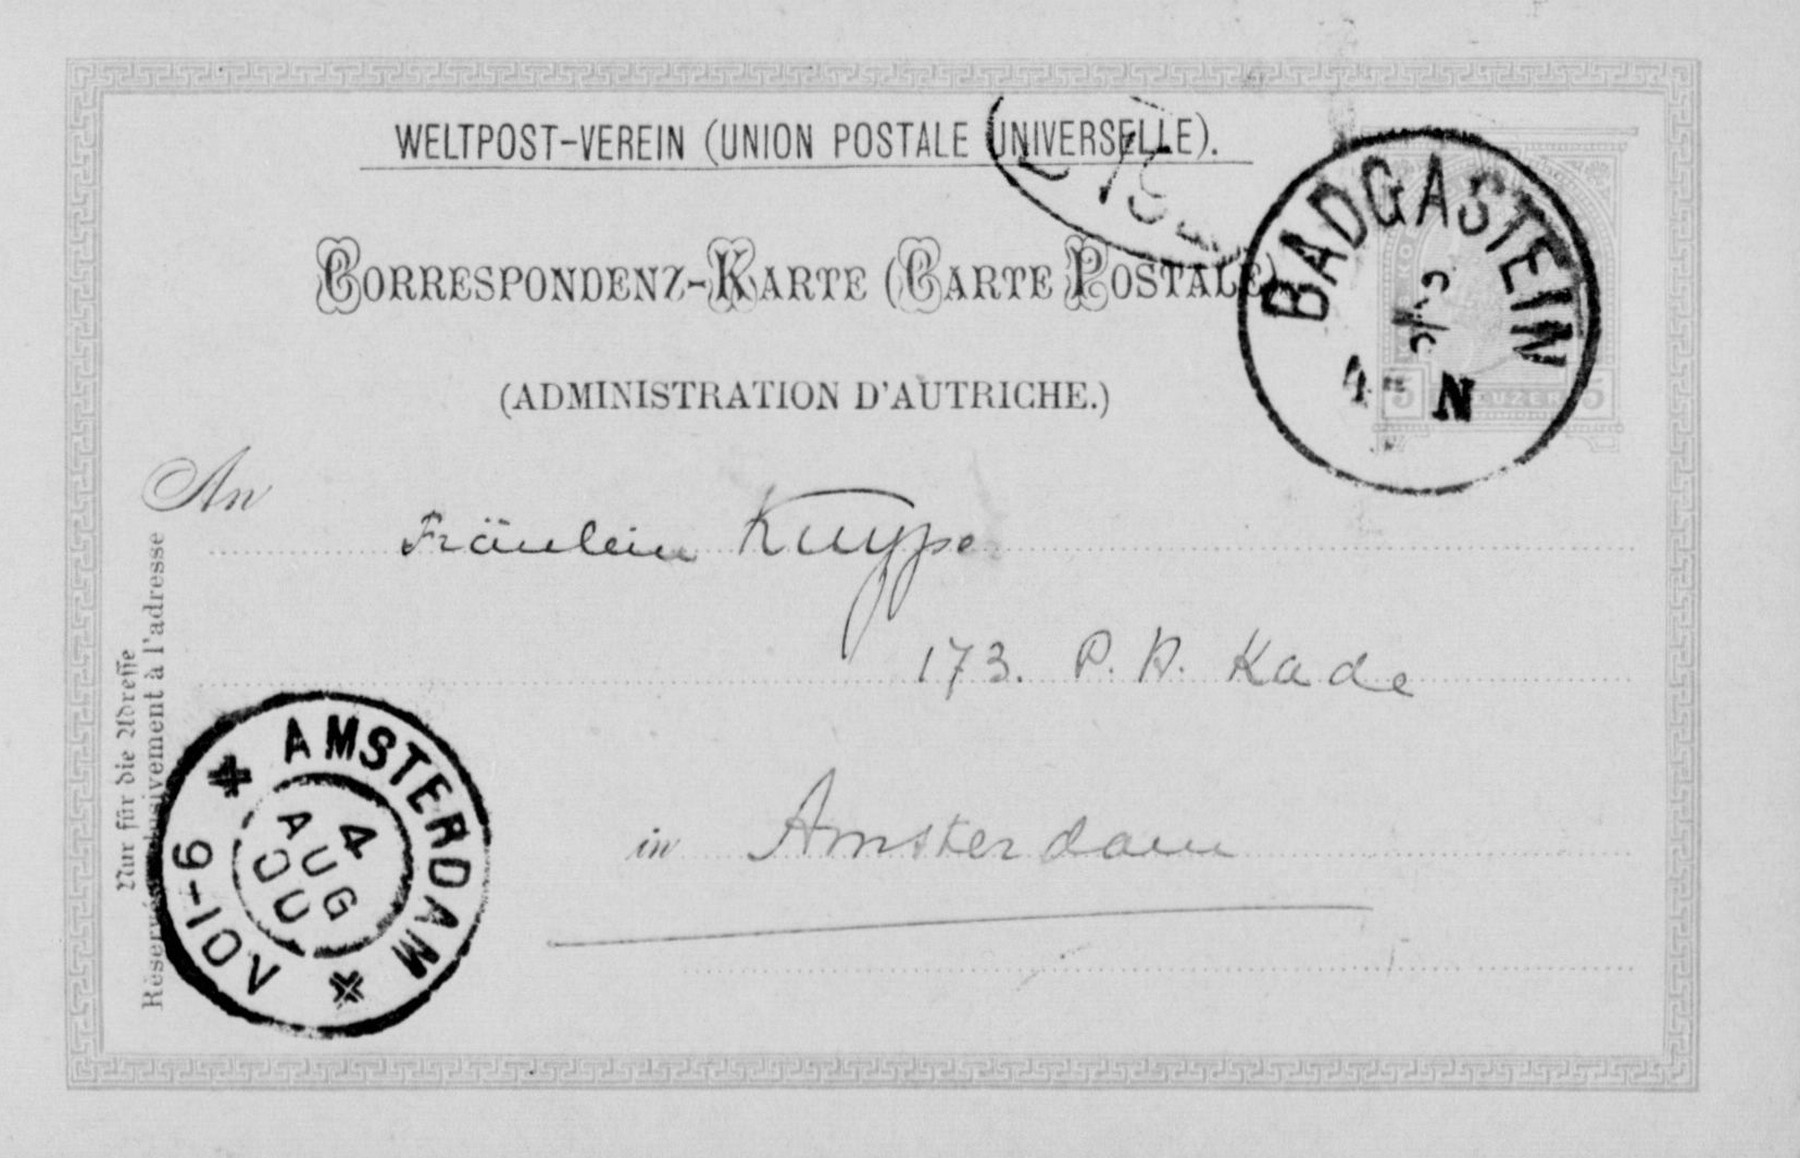 WELTPOST-VEREIN (UNION POSTALE UNIVERSELLE).
CORRESPONDENZ-KARTE (CARTE POSTALE)
(ADMINISTRATION D'AUTRICHE.)
BADGASTEIN
N
5 KREUZER 5
An
Fräulein Kuyper
173. P. H. Kade
in Amsterdam
Nur für die Adresse
Réservé exclusivement à l'adresse
AMSTERDAM
4
AUG
00
9-10V